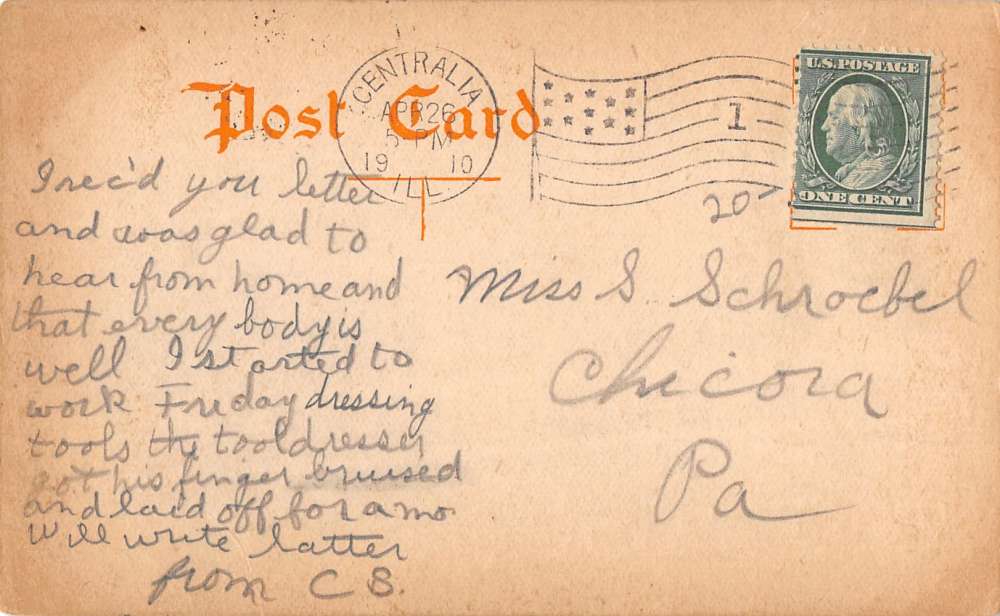 Post Card
CENTRALIA
APR 26
5-PM
19 10
ILL.
1
U.S. POSTAGE
ONE CENT
20
I rec'd you letter
and was glad to
hear from home and
that every body is
well I started to
work Friday dressing
tools the tooldresser
got his finger bruised
and laid off for a mo
Will write latter
from C S.
Miss S Schroebel
Chicora
Pa